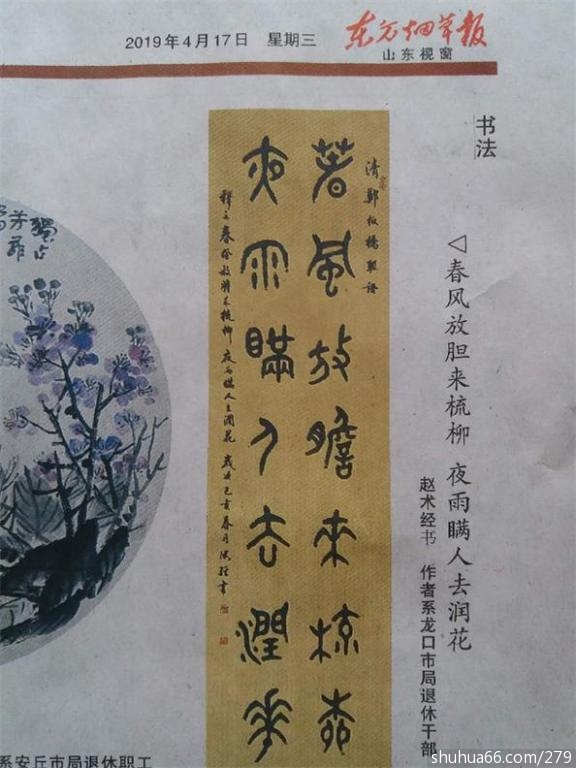 2019年4月17日 星期三
东方烟草报
山东视窗
书法
◁春风放胆来梳柳 夜雨瞒人去润花
赵术经书 作者系龙口市局退休干部
清 郑板桥联语
春风放胆来梳柳
夜雨瞒人去润花
释文春风放胆来梳柳 夜雨瞒人去润花 岁次己亥春月
系安丘市局退休职工
shuhua66.com/279